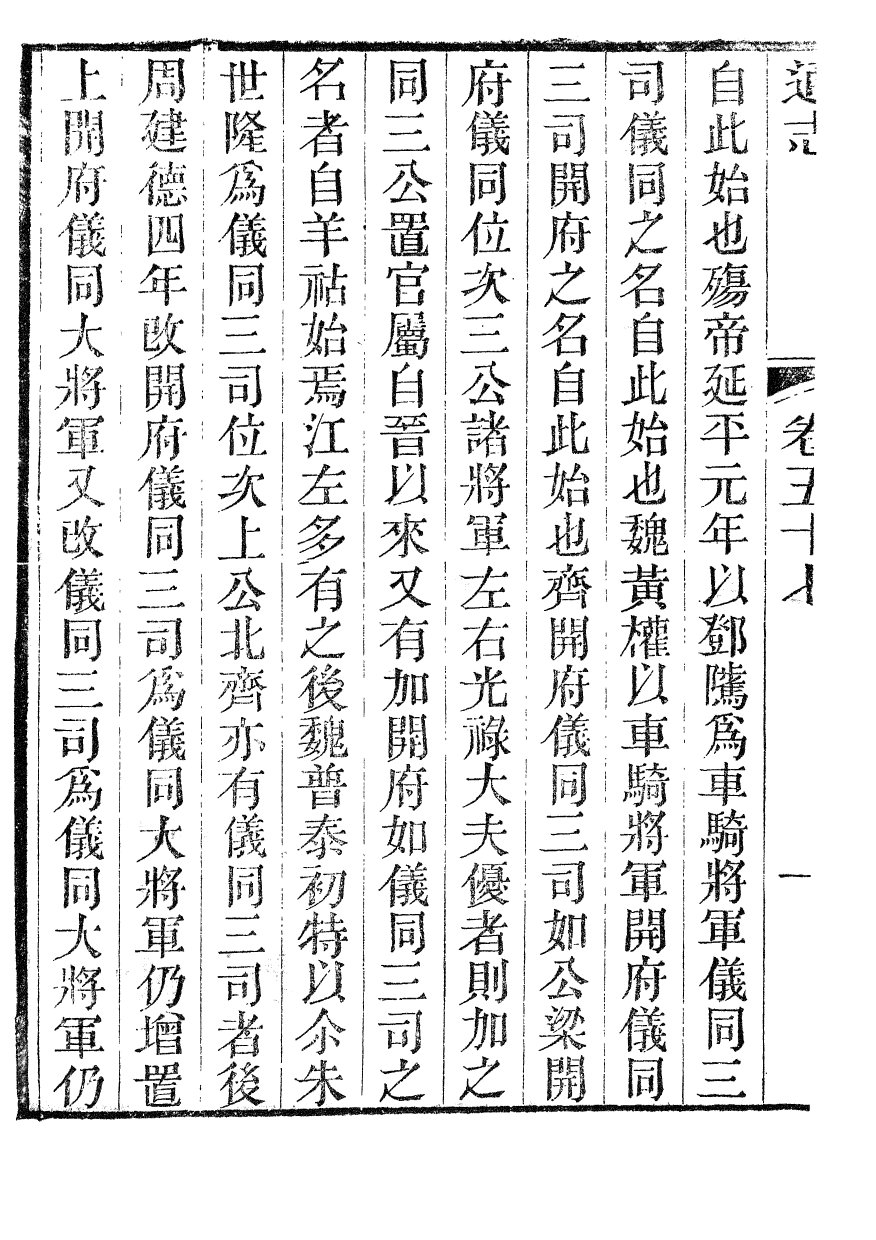 通志 卷五十七 一
自此始也殤帝延平元年以鄧騭爲車騎將軍儀同三
司儀同之名自此始也魏黃權以車騎將軍開府儀同
三司開府之名自此始也齊開府儀同三司如公梁開
府儀同位次三公諸將軍左右光祿大夫優者則加之
同三公置官屬自晉以來又有加開府如儀同三司之
名者自羊祜始焉江左多有之後魏普泰初特以尒朱
世隆爲儀同三司位次上公北齊亦有儀同三司者後
周建德四年改開府儀同三司爲儀同大將軍仍增置
上開府儀同大將軍又改儀同三司爲儀同大將軍仍